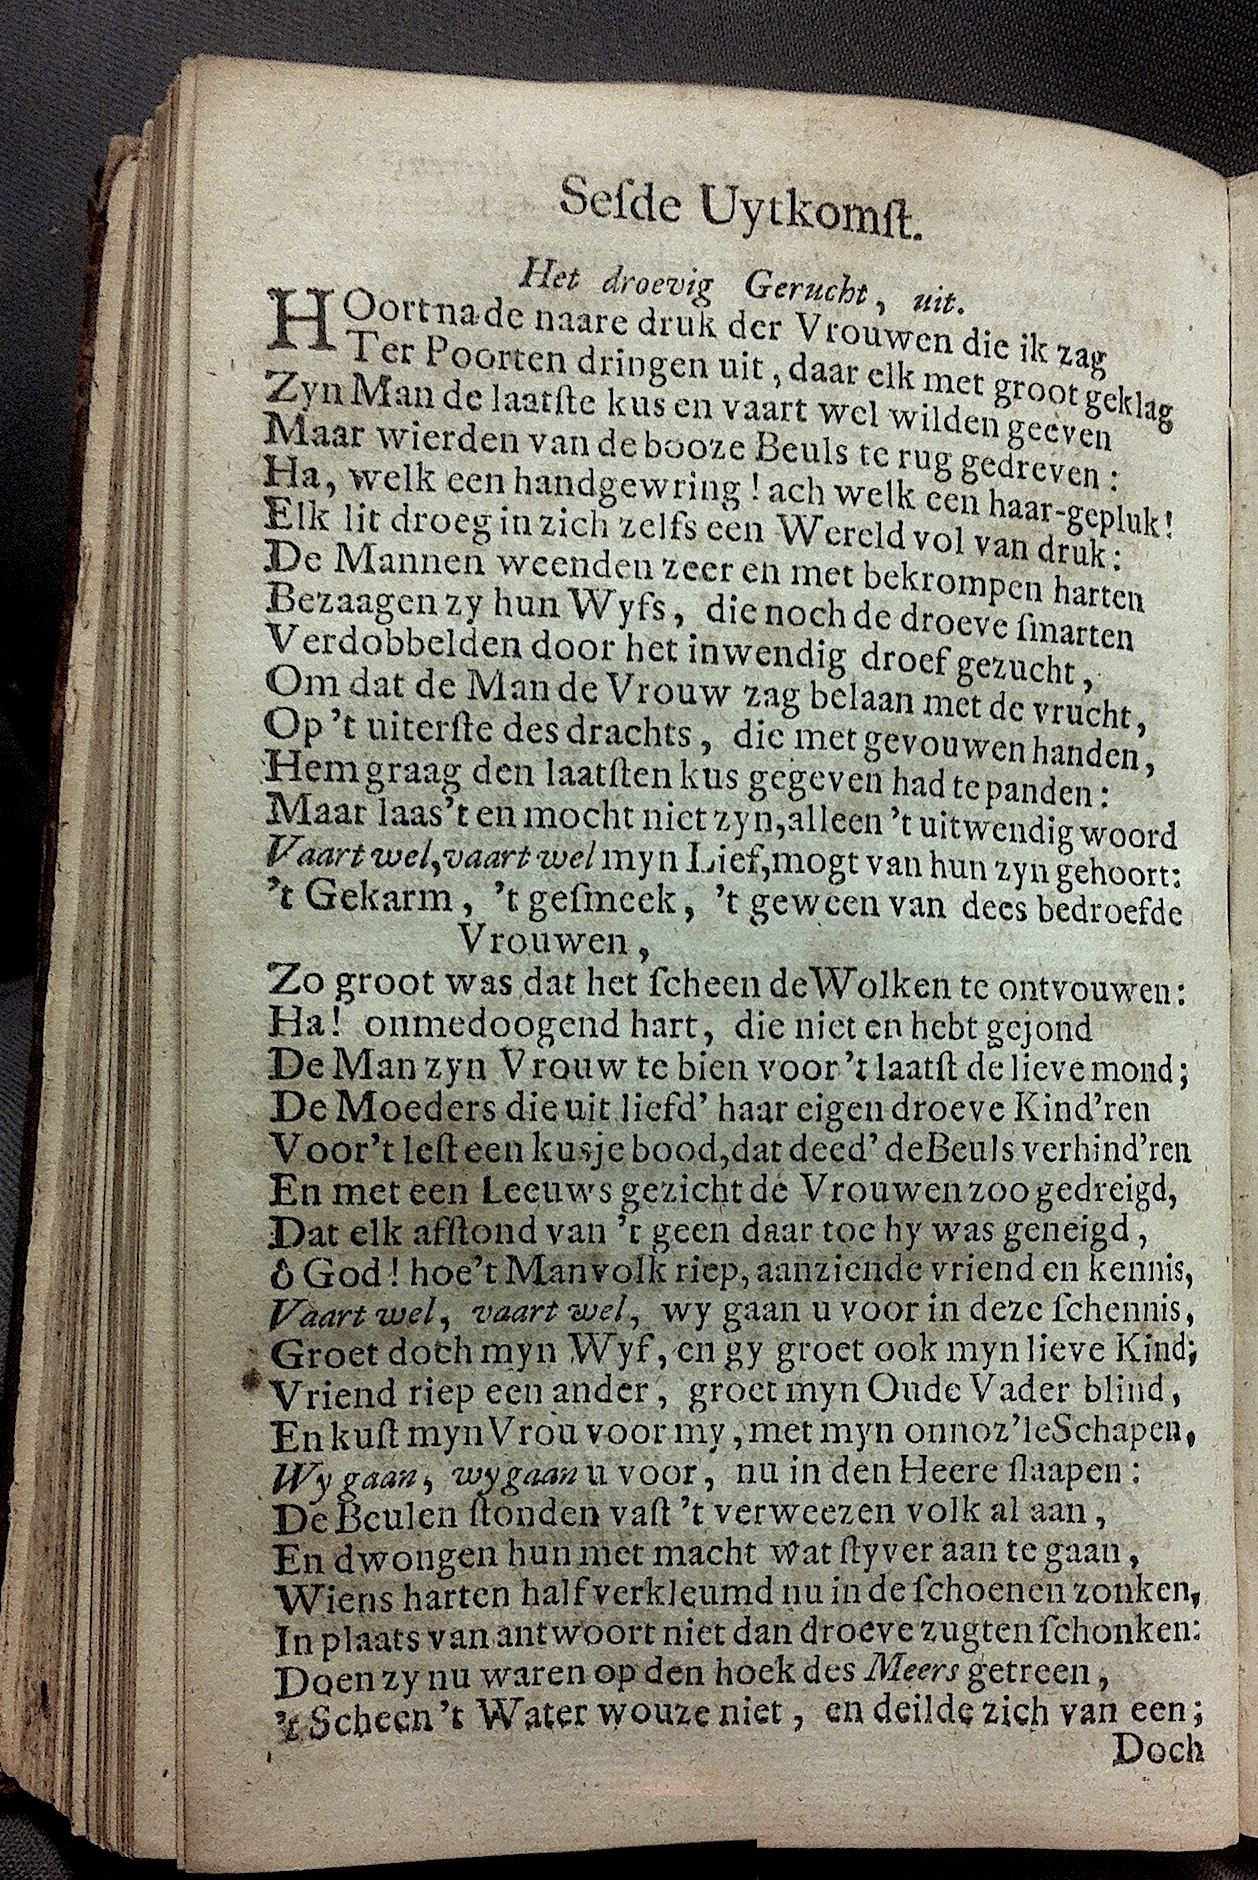 Seſde Uytkomſt.
Het droevig Gerucht, uit.
HOort na de naare druk der Vrouwen die ik zag
Ter Poorten dringen uit, daar elk met groot geklag
Zyn Man de laatſte kus en vaart wel wilden geeven
Maar wierden van de booze Beuls te rug gedreven:
Ha, welk een handgewring! ach welk een haar-gepluk!
Elk lit droeg in zich zelfs een Wereld vol van druk:
De Mannen weenden zeer en met bekrompen harten
Bezaagen zy hun Wyfs, die noch de droeve ſmarten
Verdobbelden door het inwendig droef gezucht,
Om dat de Man de Vrouw zag belaan met de vrucht,
Op 't uiterſte des drachts, die met gevouwen handen,
Hem graag den laatſten kus gegeven had te panden:
Maar laas 't en mocht niet zyn, alleen 't uitwendig woord
Vaart wel, vaart wel myn Lief, mogt van hun zyn gehoort:
't Gekarm, 't geſmeek, 't geween van dees bedroefde
Vrouwen,
Zo groot was dat het ſcheen de Wolken te ontvouwen:
Ha! onmedoogend hart, die niet en hebt gejond
De Man zyn Vrouw te bien voor 't laatſt de lieve mond;
De Moeders die uit liefd' haar eigen droeve Kind'ren
Voor 't leſt een kusje bood, dat deed' de Beuls verhind'ren
En met een Leeuws gezicht de Vrouwen zoo gedreigd,
Dat elk afſtond van 't geen daar toe hy was geneigd,
ô God! hoe 't Manvolk riep, aanziende vriend en kennis,
Vaart wel, vaart wel, wy gaan u voor in deze ſchennis,
Groet doch myn Wyf, en gy groet ook myn lieve Kind;
Vriend riep een ander, groet myn Oude Vader blind,
En kuſt myn Vrou voor my, met myn onnoz'le Schapen,
Wy gaan, wy gaan u voor, nu in den Heere ſlaapen:
De Beulen ſtonden vaſt 't verweezen volk al aan,
En dwongen hun met macht wat ſtyver aan te gaan,
Wiens harten half verkleumd nu in de ſchoenen zonken,
In plaats van antwoort niet dan droeve zugten ſchonken:
Doen zy nu waren op den hoek des Meers getreen,
't Scheen 't Water wouze niet, en deilde zich van een;
Doch